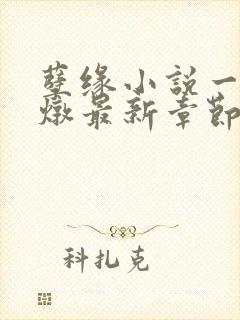 孽缘小说一
燉最新章节
科扎克